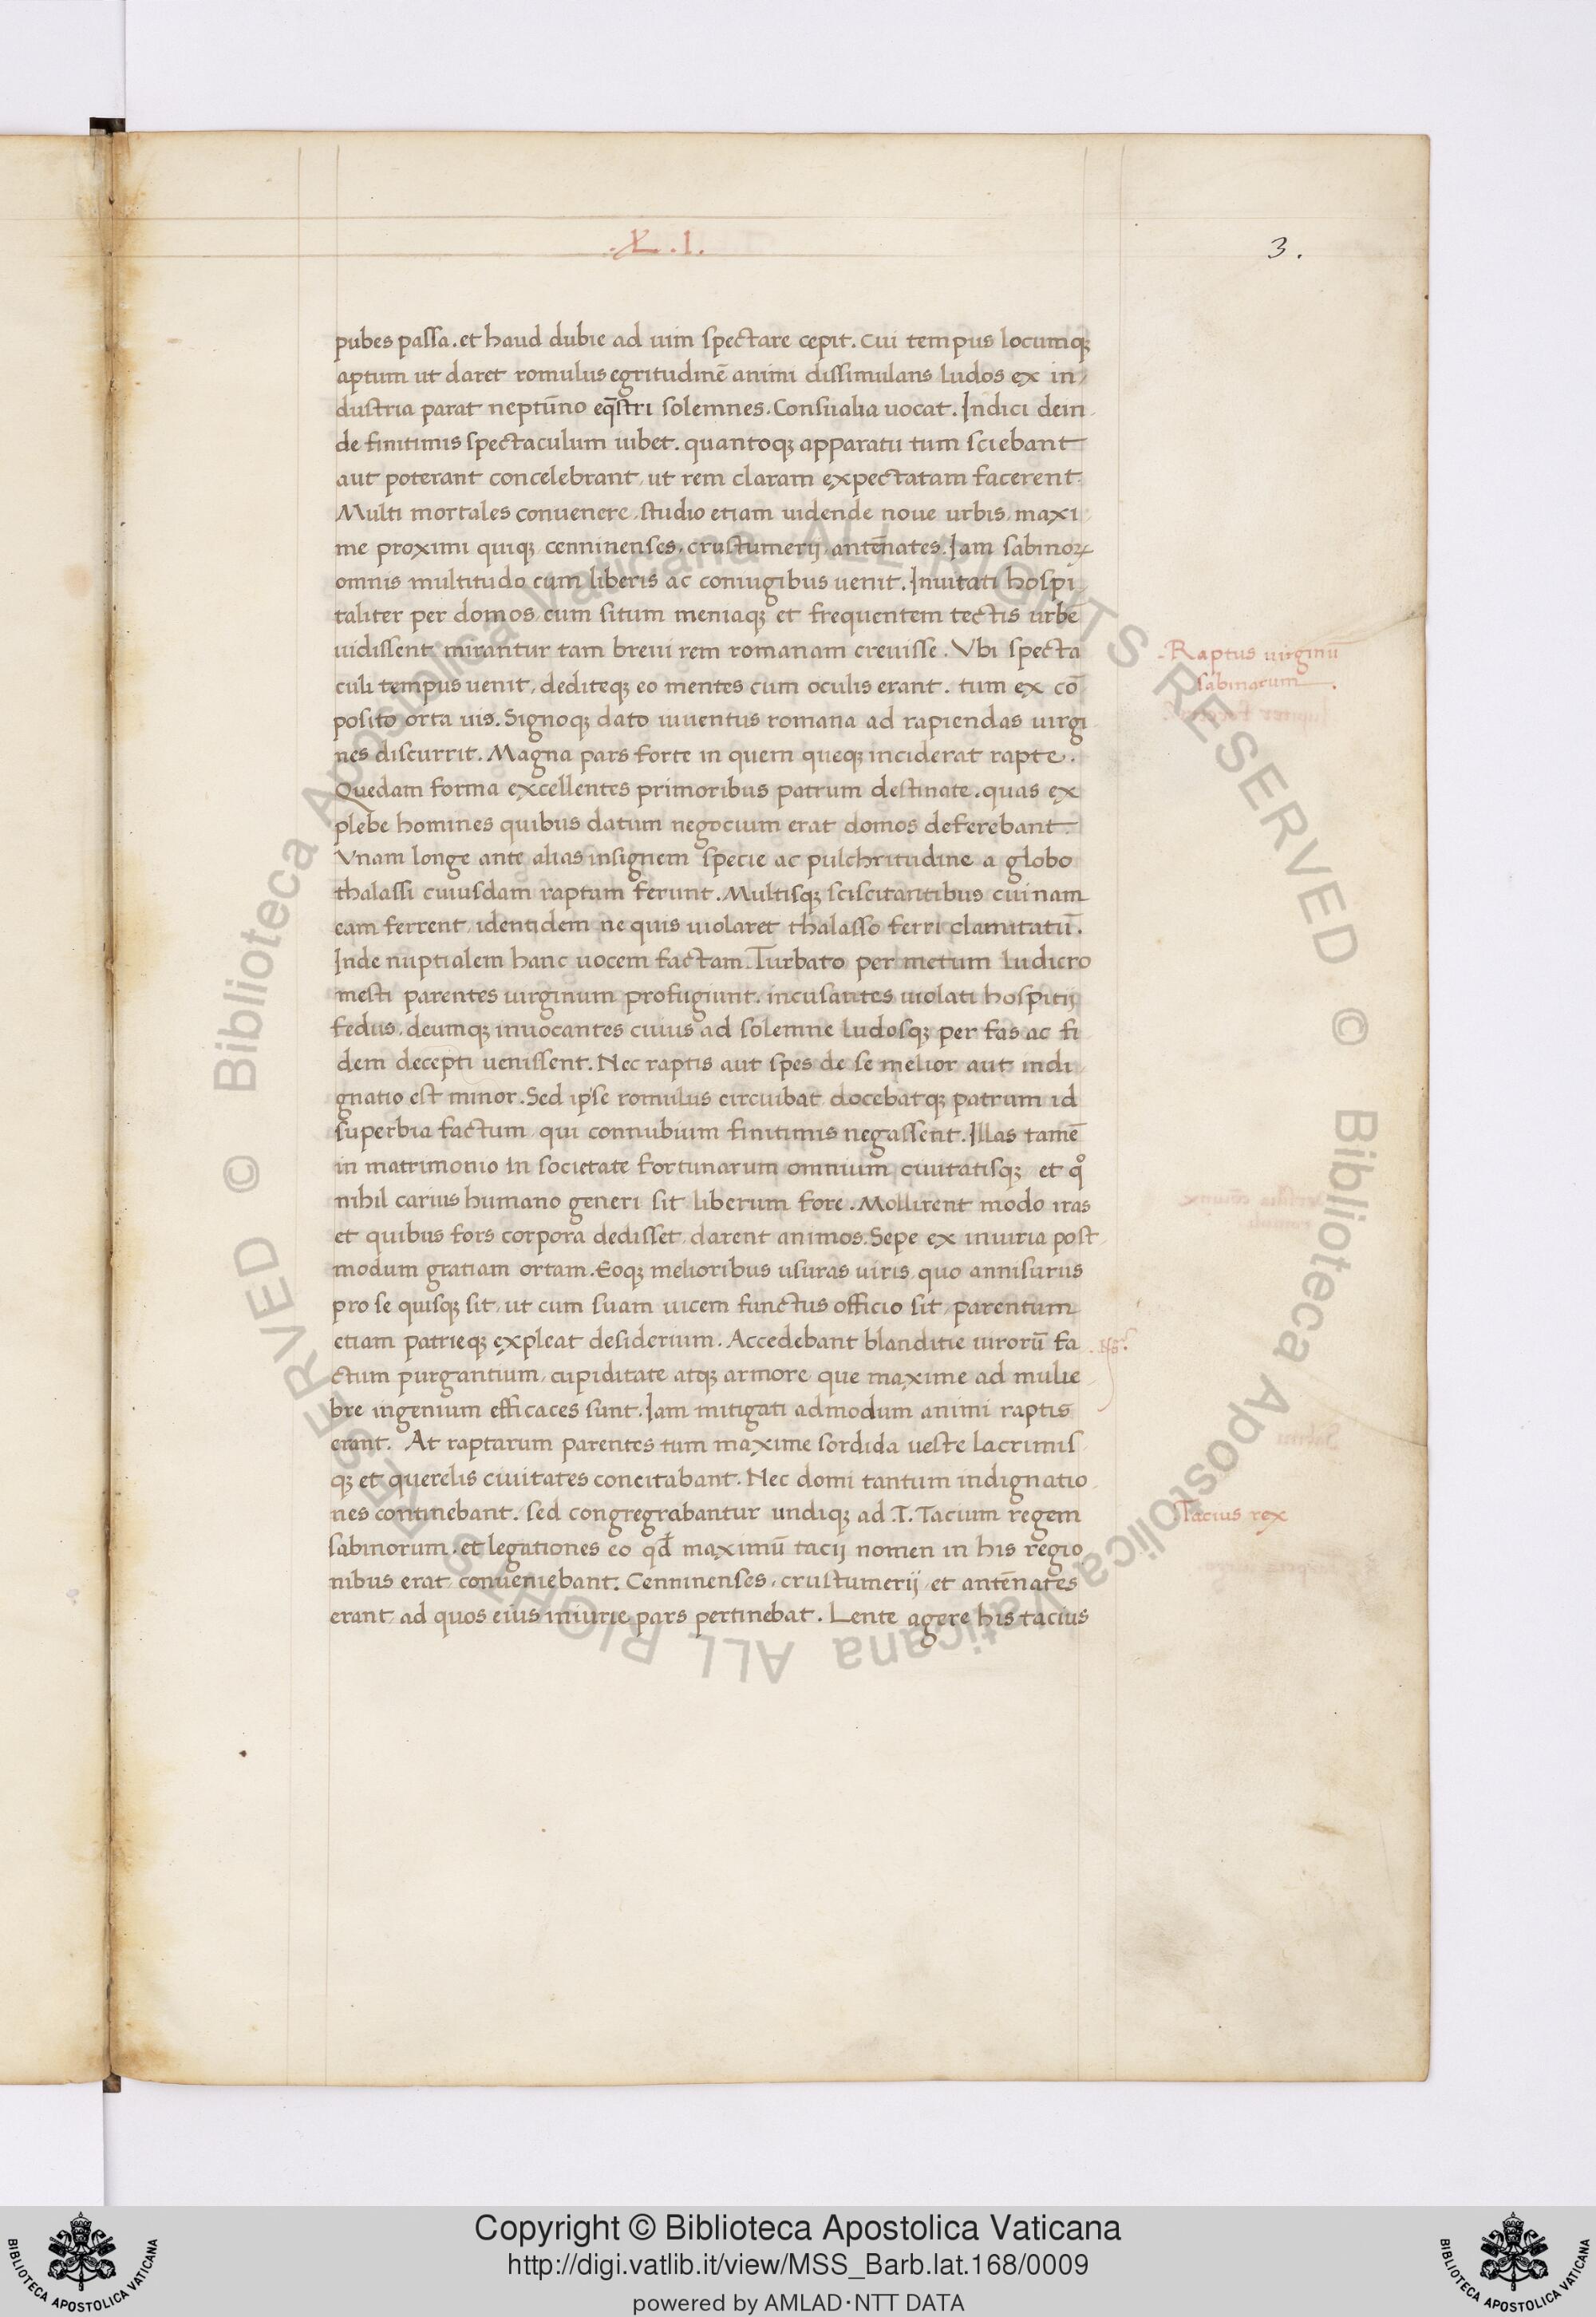 .L.I.
3.
pubes passa. et haud dubie ad uim spectare cepit. Cui tempus locumqꝫ
aptum ut daret romulus egritudinē animi dissimulans ludos ex in
dustria parat neptūno eq̄stri solemnes. Consualia uocat. Indici dein
de finitimis spectaculum iubet. quantoqꝫ apparatu tum sciebant
aut poterant concelebrant, ut rem claram expectatam facerent.
Multi mortales conuenere, studio etiam uidende noue urbis, maxi
me proximi quiqꝫ cenninenses, crustumerij, antēnates. Iam sabinoꝝ
omnis multitudo cum liberis ac coniugibus uenit. Inuitati hospi
taliter per domos, cum situm meniaqꝫ et frequentem tectis urbē
uidissent, mirantur tam breui rem romanam creuisse. Vbi specta
culi tempus uenit, dediteqꝫ eo mentes cum oculis erant. tum ex cō
posito orta uis. Signoqꝫ dato iuuentus romana ad rapiendas uirgi
nes discurrit. Magna pars forte in quem queqꝫ inciderat rapte.
Quedam forma excellentes primoribus patrum destinate. quas ex
plebe homines quibus datum negocium erat domos deferebant.
Vnam longe ante alias insignem specie ac pulchritudine a globo
thalassi cuiusdam raptam ferunt. Multisqꝫ sciscitantibus cuinam
eam ferrent, identidem ne quis uiolaret thalasso ferri clamitatū.
Inde nuptialem hanc uocem factam. Turbato per metum ludicro
mesti parentes uirginum profugiunt. incusantes uiolati hospitij
fedus, deumqꝫ inuocantes cuius ad solemne ludosqꝫ per fas ac fi
dem decepti uenissent. Nec raptis aut spes de se melior aut indi
gnatio est minor. Sed ipse romulus circuibat docebatqꝫ patrum id
superbia factum, qui connubium finitimis negassent. Illas tamē
in matrimonio in societate fortunarum omnium ciuitatisqꝫ et qͦ
nihil carius humano generi sit liberum fore. Mollirent modo iras
et quibus fors corpora dedisset, darent animos. Sepe ex iniuria post
modum gratiam ortam. Eoqꝫ melioribus usuras uiris, quo annisurus
pro se quisqꝫ sit, ut cum suam uicem functus officio sit, parentum
etiam patrieqꝫ expleat desiderium. Accedebant blanditie uirorū fa
ctum purgantium, cupiditate atqꝫ armore que maxime ad mulie
bre ingenium efficaces sunt. Iam mitigati admodum animi raptis
erant. At raptarum parentes tum maxime sordida ueste lacrimis
qꝫ et querelis ciuitates concitabant. Nec domi tantum indignatio
nes continebant. sed congregrabantur undiqꝫ ad .T. Tacium regem
sabinorum. et legationes eo qd̄ maximū tacij nomen in his regio
nibus erat conueniebant. Cenninenses, crustumerij, et antēnates
erant, ad quos eius iniurie pars pertinebat. Lente agere his tacius
Raptus uirginū
sabinarum
Tacius rex
Copyright © Biblioteca Apostolica Vaticana
http://digi.vatlib.it/view/MSS_Barb.lat.168/0009
powered by AMLAD·NTT DATA
BIBLIOTECA APOSTOLICA VATICANA
BIBLIOTECA APOSTOLICA VATICANA
© Biblioteca Apostolica Vaticana ALL RIGHTS RESERVED © Biblioteca Apostolica Vaticana ALL RIGHTS RESERVED